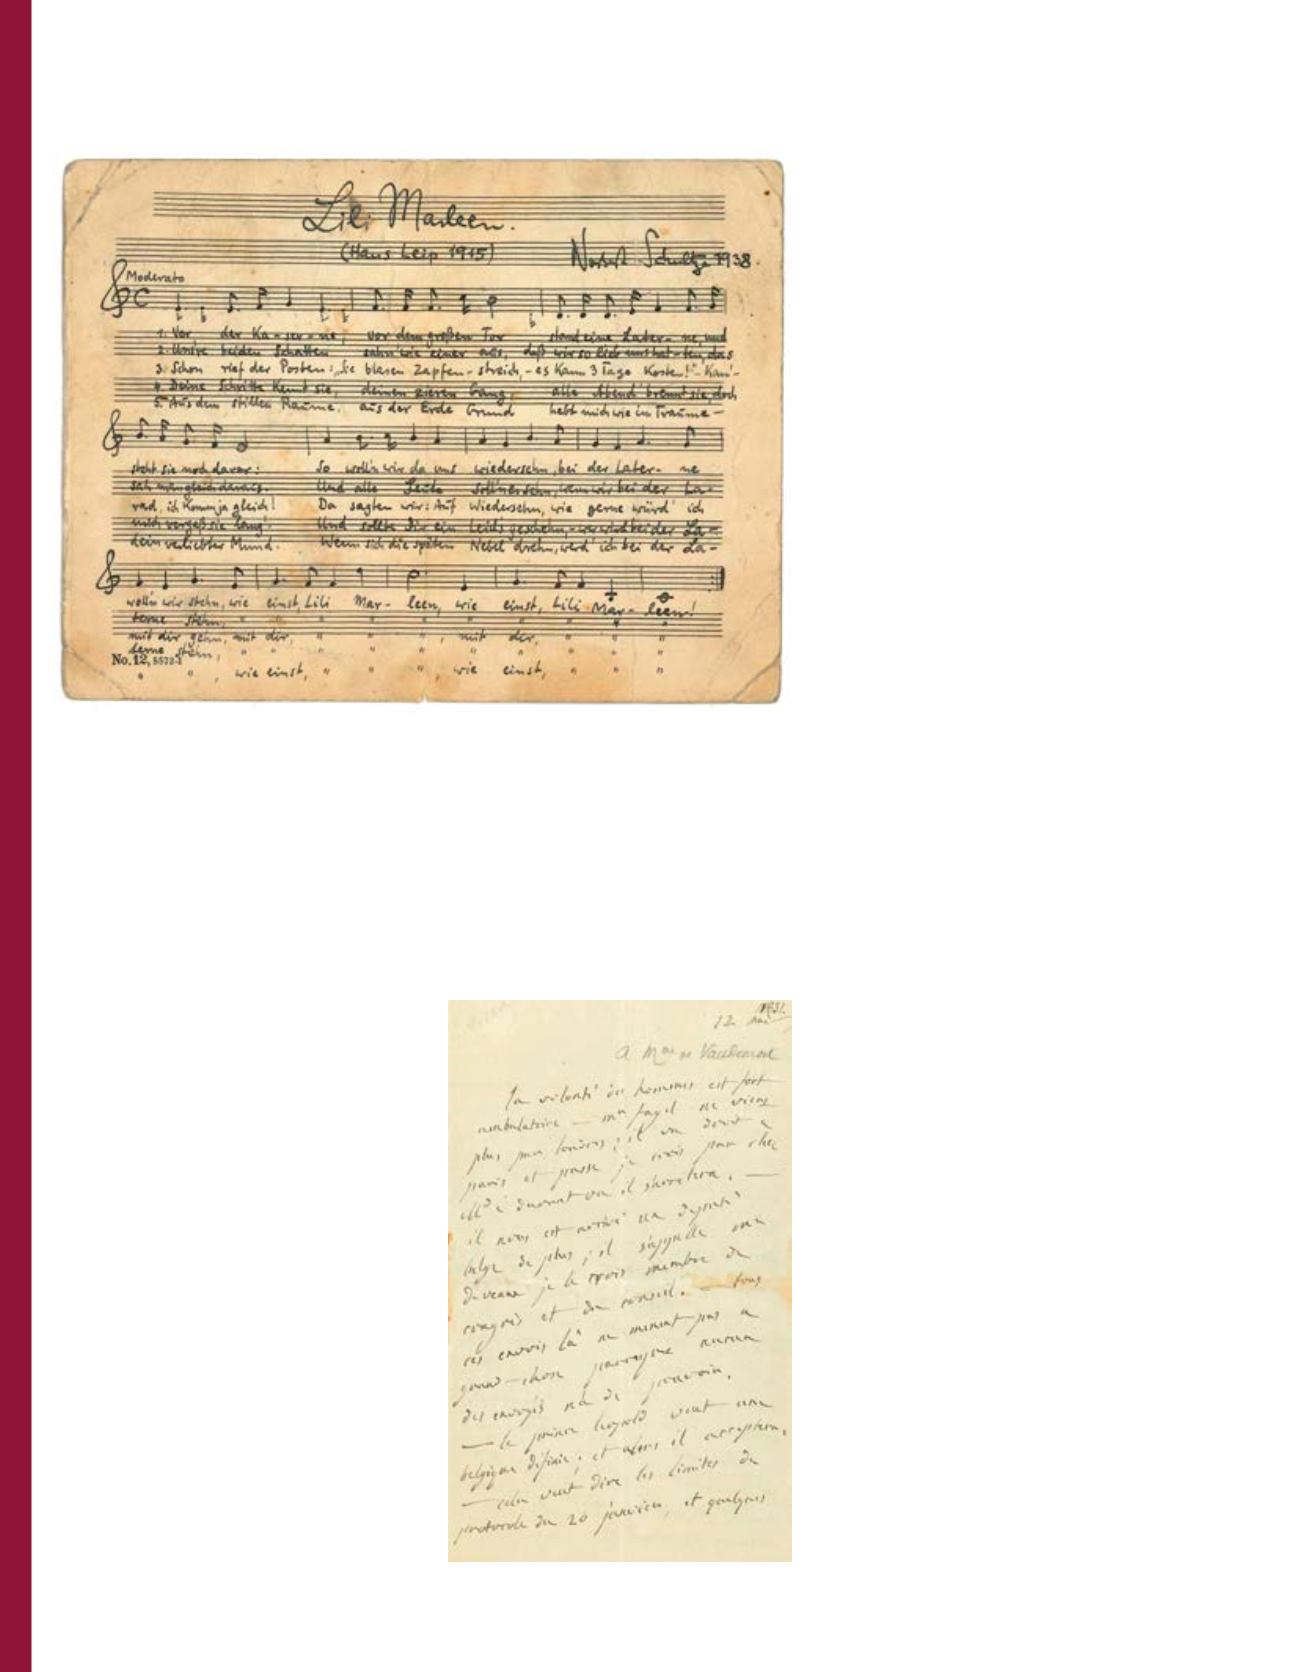 Lili Marleen.
(Hans Leip 1915) Norbert Schultze 1938.
Moderato
1. Vor der Ka-ser-ne, vor dem großen Tor stand eine Later-ne, und
2. Unsre beiden Schatten sahn wie einer aus, daß wir so lieb uns hat-ten, das
3. Schon rief der Posten: Sie blasen Zapfen-streich, - es kann 3 Tage kosten!" - Kam'-
4. Deine Schritte kennt sie, deinen zieren Gang. alle Abend brennt sie, doch
5. Aus dem stillen Raume, aus der Erde Grund hebt mich wie im Traume -
steht sie noch davor: So woll'n wir da uns wiedersehn, bei der Later- ne
sah man gleich daraus. Und alle Leute soll'n es sehn, wenn wir bei der La-
rad, ich komm ja gleich! Da sagten wir: Auf Wiedersehn, wie gerne würd' ich
mich vergaß sie lang. Und sollte Dir ein Leids geschehn, - wer wird bei der La-
dein verliebter Mund. Wenn sich die späten Nebel drehn, werd' ich bei der La-
woll'n wir stehn, wie einst, Lili Mar- leen, wie einst, Lili Mar- leen!
terne stehn, " " " " " " "
mit dir gehn, mit dir, " " " , mit dir, " " "
terne stehn, " " " " " " " "
No. 12, 5573-1
" " , wie einst, " " " , wie einst, " " "
12 mai
a Mme de Vaudemont
La volonté des hommes est fort
ambulatoire — Mr fagel ne viens
plus par londres; il va droit a
paris et passe je crois par chez
où il s'arrêtera. —
il nous est arrivé un député
belge de plus; il s'appelle
je le crois membre du
congrès et du conseil. — tous
ces envois là ne menent pas a
grand-chose parceque aucun
des envoyés n'a de pouvoir.
— le prince leopold veut une
belgique définie; et alors il acceptera.
— cela veut dire les limites du
protocole du 20 janvier, et quelques